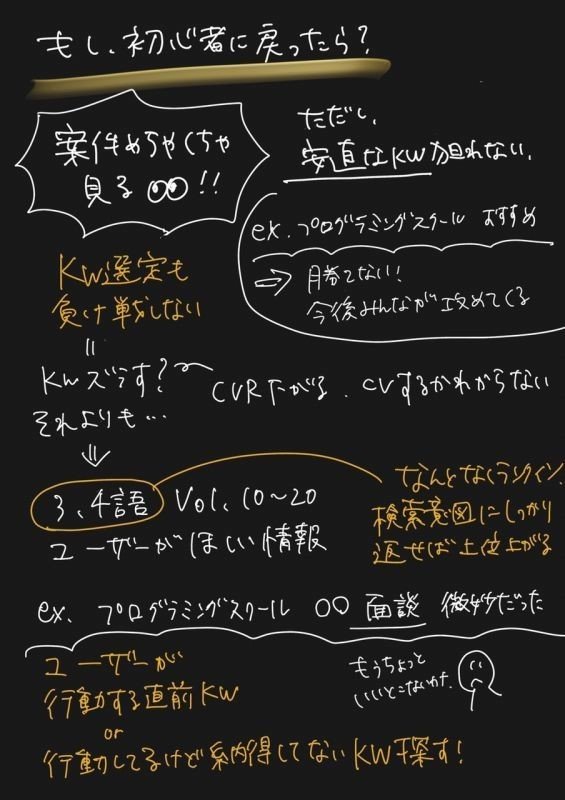 もし、初心者に戻ったら?
案件めちゃくちゃ
見る!!
ただし、
安直なKW狙れない、
ex. プログラミングスクール おすすめ
⇒ 勝てない!
今後みんなが攻めてくる
KW選定も
負け戦しない
=
KWズラす?
CVR下がる、CVするかわからない
それよりも…
⇓
3、4語 Vol. 10~20
ユーザーがほしい情報
なんとなくランクイン、
検索意図にしっかり
返せば上位上がる
ex. プログラミングスクール 〇〇 面談 微妙だった
もうちょっと
いいとこないカナ、
ユーザーが
行動する直前KW
or
行動してるけど納得してないKW探す!